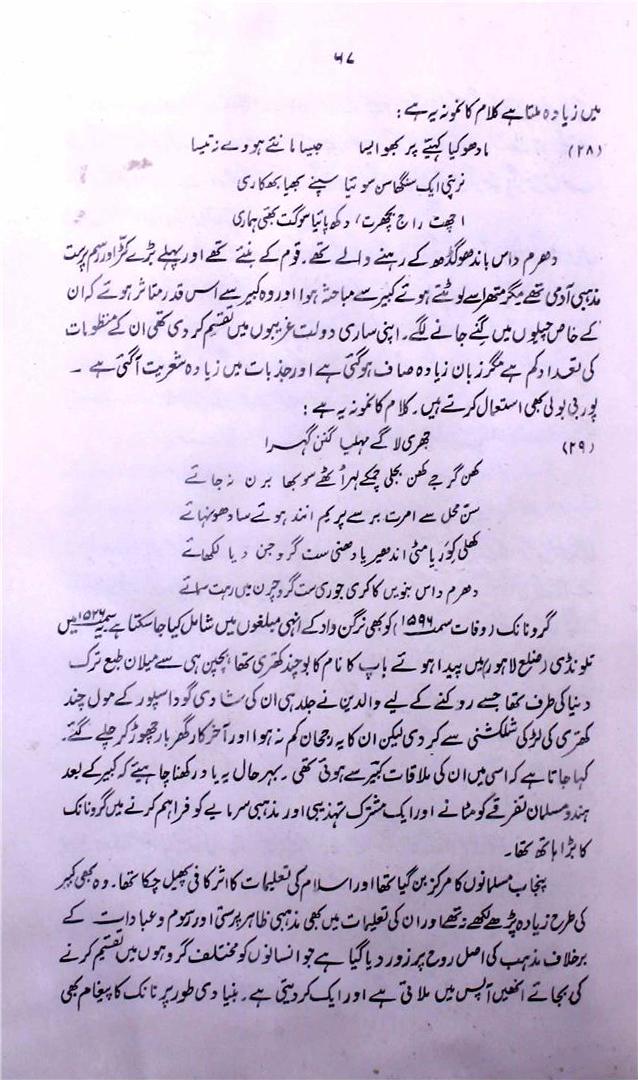 ۶۷
میں زیادہ ملتا ہے کلام کا نمونہ یہ ہے :
(۲۸) مادھو کیا کہیئے پر بھو ایسا جیسا مانئے ہووے نہ تیسا
نرپتی ایک سنگھاسن سوئیا سپنے بھیا بھکاری
اچھت راج بچھرت، دکھ پائیا سوگت بھئی ہماری
دھرم داس باندھو گڈھ کے رہنے والے تھے۔ قوم کے بنئے تھے اور پہلے بڑے کٹر اور رسم پرست
مذہبی آدمی تھے مگر متھرا سے لوٹتے ہوئے کبیر سے مباحثہ ہوا اور وہ کبیر سے اس قدر متاثر ہوئے کہ ان
کے خاص چیلوں میں گنے جانے لگے۔ اپنی ساری دولت غریبوں میں تقسیم کر دی تھی ان کے منظومات
کی تعداد کم ہے مگر زبان زیادہ صاف ہو گئی ہے اور جذبات میں زیادہ شعریت آگئی ہے ۔
پوربی بولی بھی استعمال کرتے ہیں۔ کلام کا نمونہ یہ ہے :
(۲۹) جھری لاگے مہلیا گگن گہرا
کھن گرجے کھن بجلی چمکے لہر اٹھے سوبھا برن نہ جائے
سن محل سے امرت برسے پریم انند ہوئے سادھو نہائے
کھلی کوریا مٹی اندھیریا دھنی ست گرو جن دیا لکھائے
دھرم داس بنویں کا کری جوری ست گرو چرن میں رہت سمائے
گرونانک (وفات سمت ۱۵۹۶) کو بھی نرگن واد کے انہی مبلغوں میں شامل کیا جا سکتا ہے یہ سمت ۱۵۲۶ میں
تلونڈی (ضلع لاہور) میں پیدا ہوئے باپ کا نام کالو چند کھتری تھا بچپن ہی سے میلان طبع ترک
دنیا کی طرف تھا جسے روکنے کے لیے والدین نے جلد ہی ان کی شادی گورداسپور کے مول چند
کھتری کی لڑکی سلکشنی سے کر دی لیکن ان کا یہ رجحان کم نہ ہوا اور آخر کار گھر بار چھوڑ کر چلے گئے۔
کہا جاتا ہے کہ اسی میں ان کی ملاقات کبیر سے ہوئی تھی ۔ بہر حال یہ یاد رکھنا چاہیئے کہ کبیر کے بعد
ہندو مسلمان تفرقے کو مٹانے اور ایک مشترک تہذیبی اور مذہبی سرمایے کو فراہم کرنے میں گرونانک
کا بڑا ہاتھ تھا۔
پنجاب مسلمانوں کا مرکز بن گیا تھا اور اسلام کی تعلیمات کا اثر کافی پھیل چکا تھا۔ وہ بھی کبیر
کی طرح زیادہ پڑھے لکھے نہ تھے اور ان کی تعلیمات میں بھی مذہبی ظاہر پرستی اور رسوم و عبادات کے
برخلاف مذہب کی اصل روح پر زور دیا گیا ہے جو انسانوں کو مختلف گروہوں میں تقسیم کرنے
کی بجائے انھیں آپس میں ملاتی ہے اور ایک کر دیتی ہے۔ بنیادی طور پر نانک کا پیغام بھی